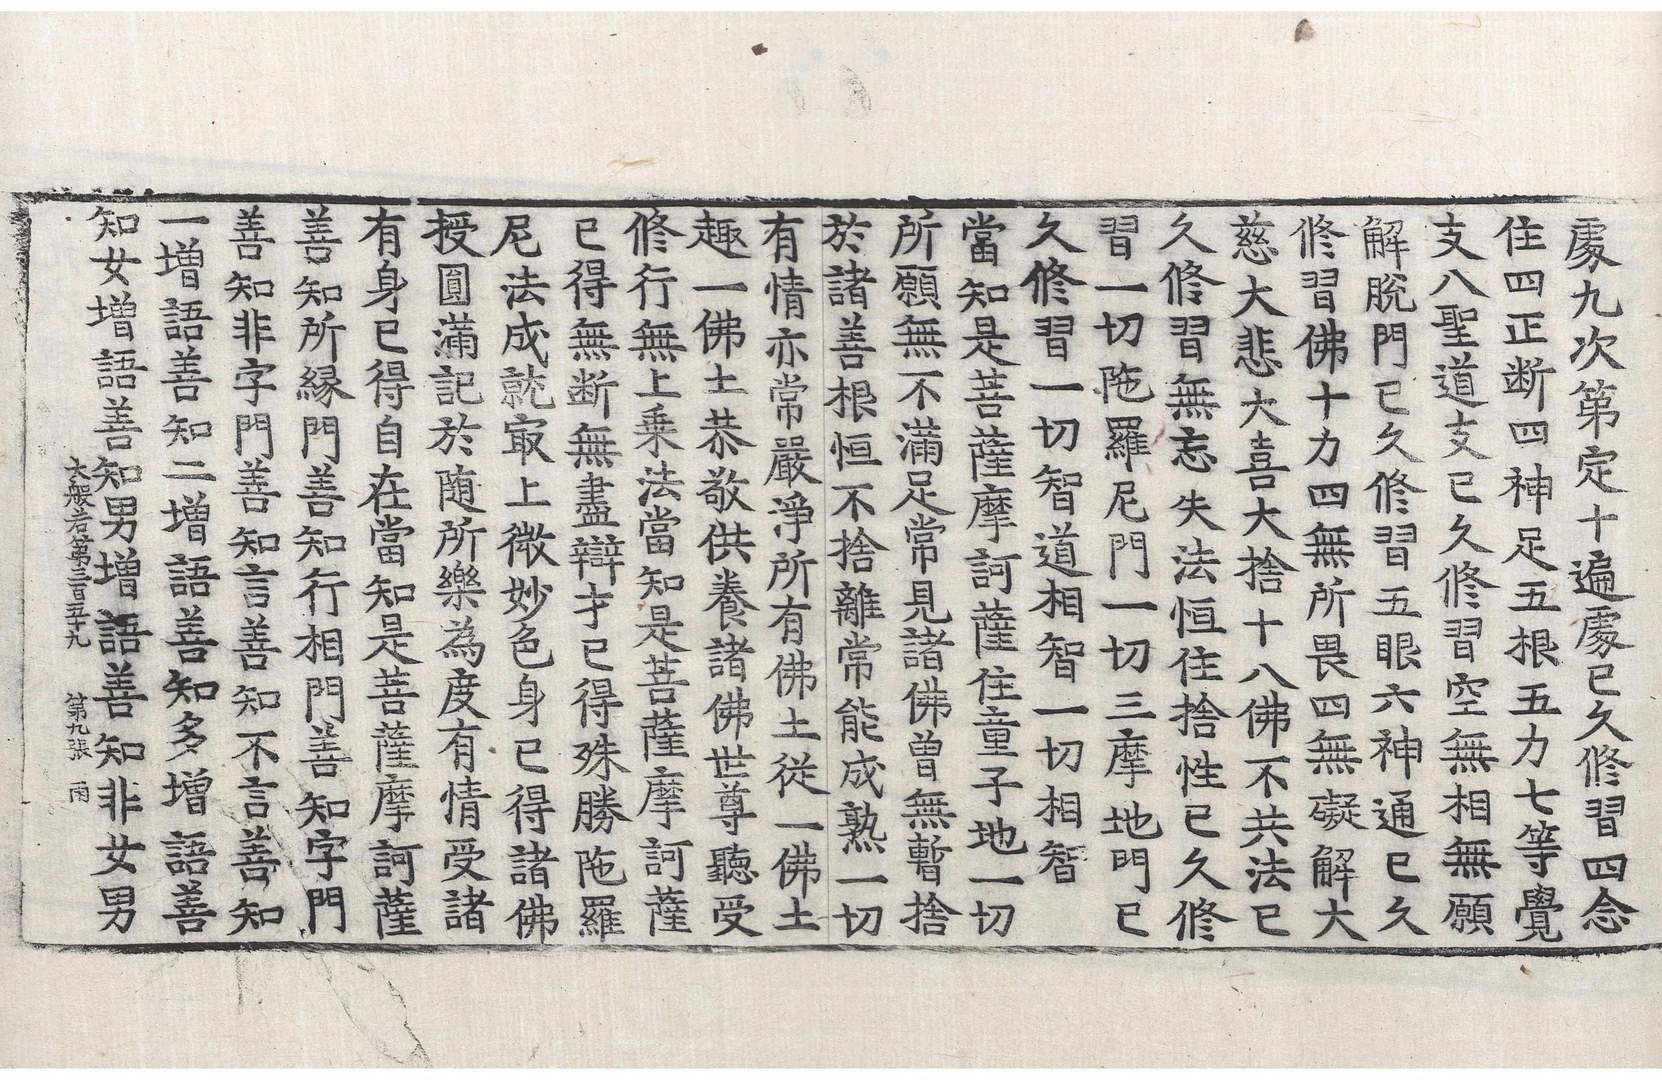 處九次第定十遍處已久修習四念
住四正断四神足五根五力七等覺
支八聖道支已久修習空無相無願
解脫門已久修習五眼六神通已久
修習佛十力四無所畏四無礙解大
慈大悲大喜大捨十八佛不共法已
久修習無忘失法恒住捨性已久修
習一切陁羅尼門一切三摩地門已
久修習一切智道相智一切相智
當知是菩薩摩訶薩住童子地一切
所願無不滿足常見諸佛曾無暫捨
於諸善根恒不捨離常能成熟一切
有情亦常嚴淨所有佛土從一佛土
趣一佛土恭敬供養諸佛世尊聽受
修行無上乗法當知是菩薩摩訶薩
已得無断無盡辯才已得殊勝陁羅
尼法成就寂上微妙色身已得諸佛
授圓滿記於随所樂為度有情受諸
有身已得自在當知是菩薩摩訶薩
善知所縁門善知行相門善知字門
善知非字門善知言善知不言善知
一增語善知二增語善知多增語善
知女增語善知男增語善知非女男
大般若第三百五十九 第九張 雨